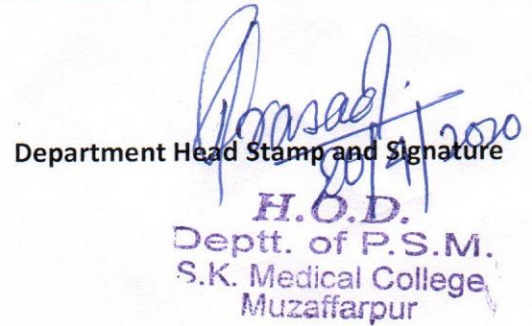 Prasad
Department Head Stamp and Signature
20/4/2020
H.O.D.
Deptt. of P.S.M.
S.K. Medical College,
Muzaffarpur